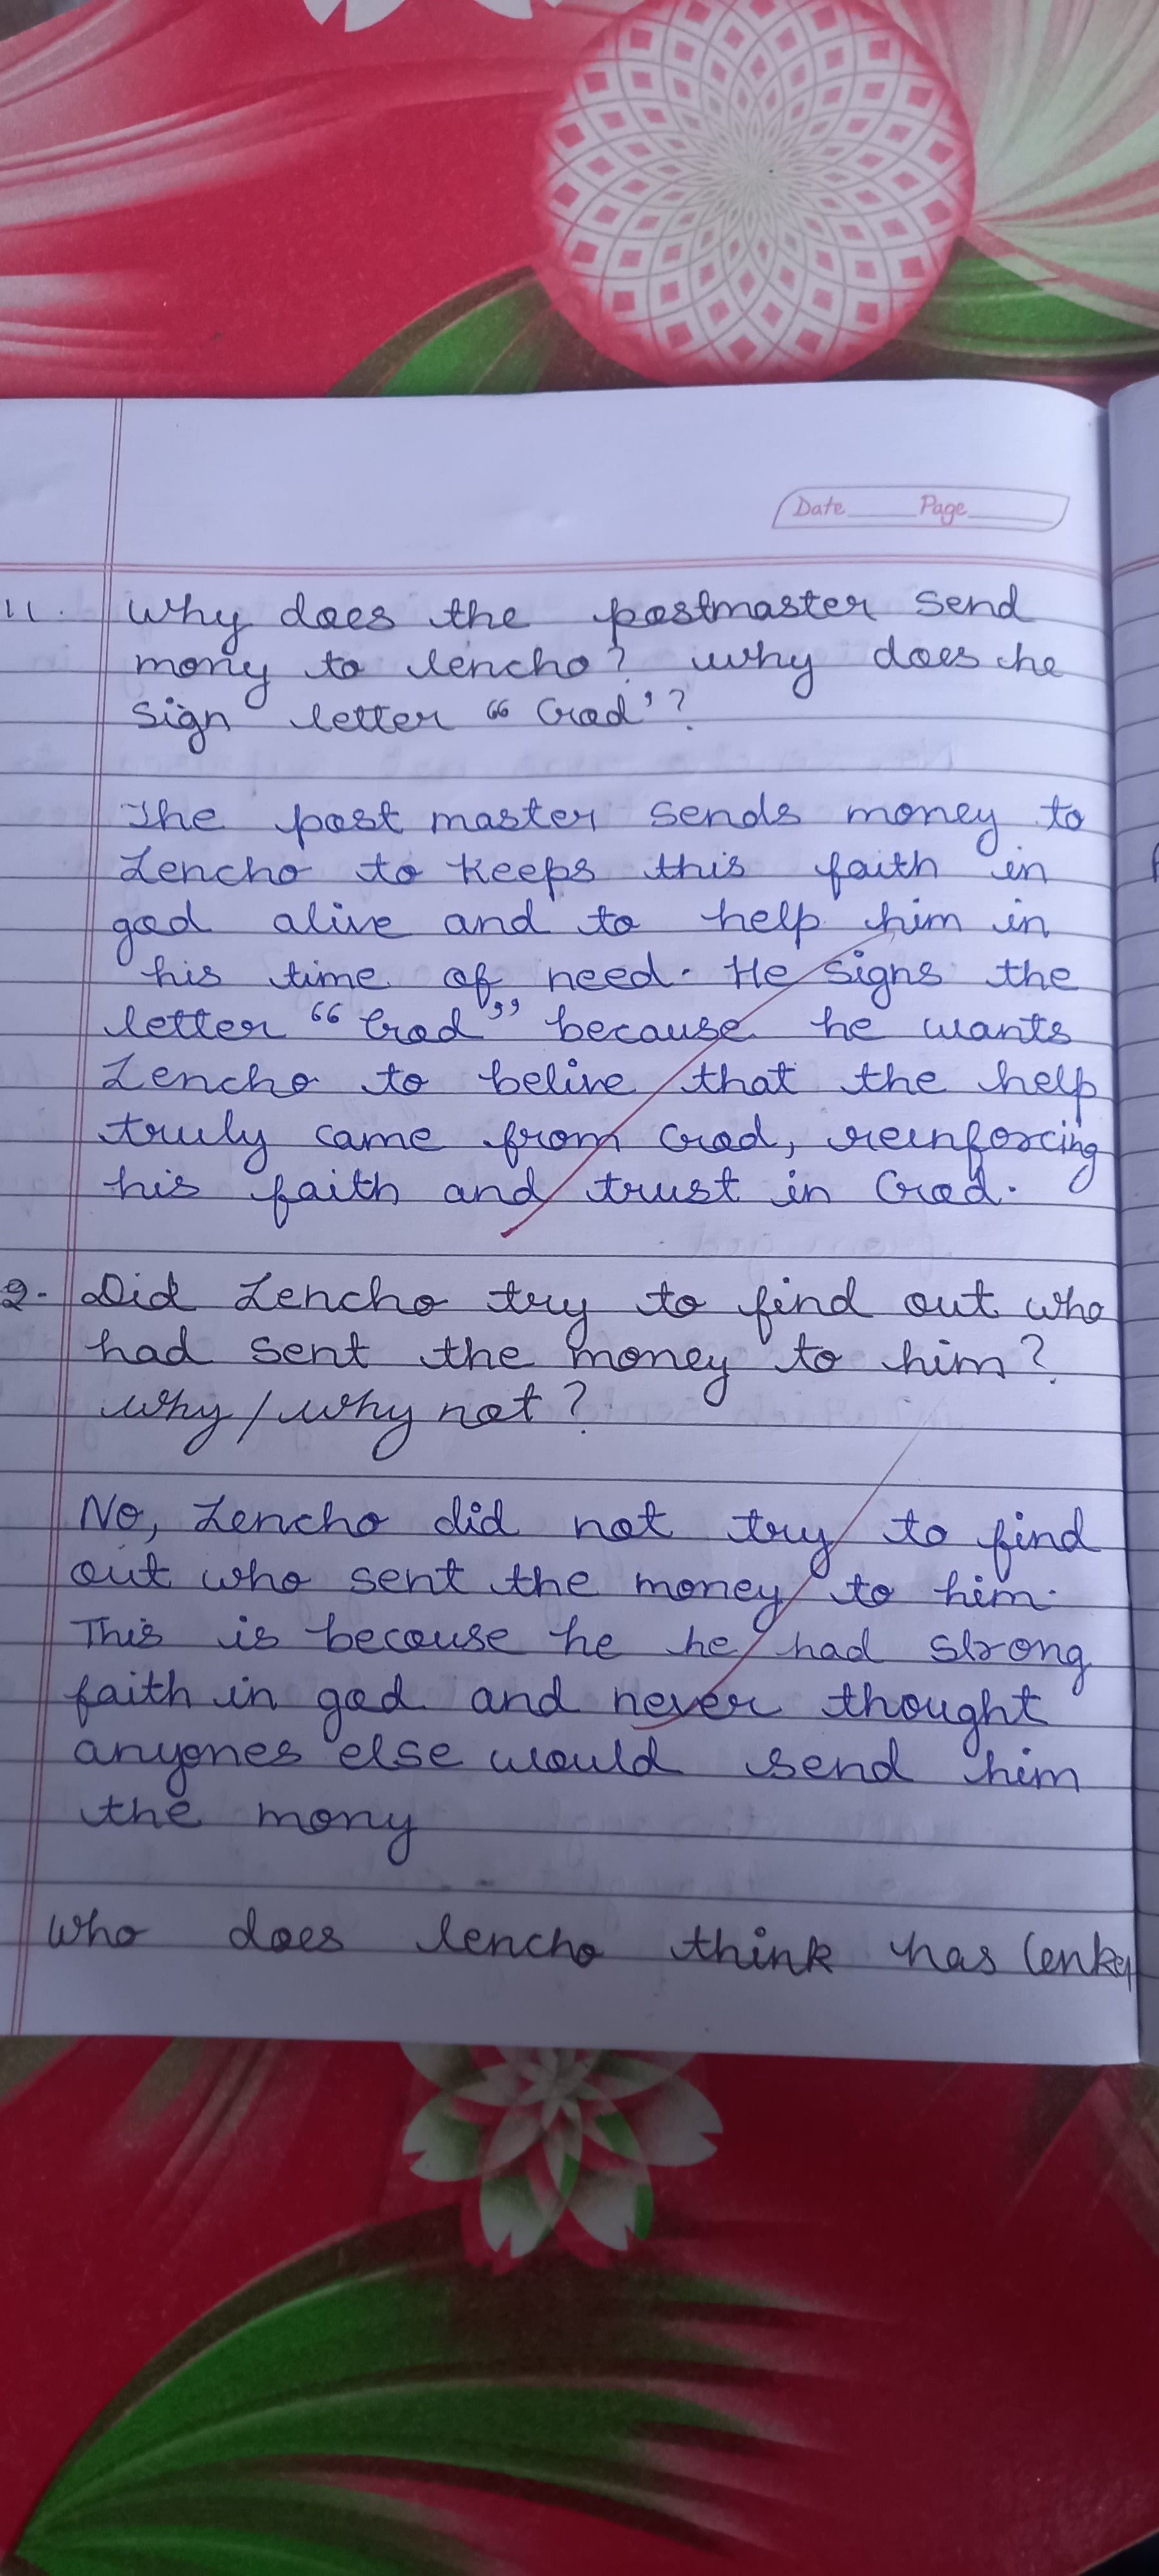 Date Page
11. Why does the postmaster send
mony to lencho? why does he
sign letter “ God’?
The post master sends money to
Lencho to keeps this faith in
god alive and to help him in
his time of need. He signs the
letter “God” because he wants
Lencho to belive that the help
truly came from God, reinforcing
his faith and trust in God.
2. Did Lencho try to find out who
had sent the money to him?
why / why not?
No, Lencho did not try to find
out who sent the money to him.
This is becouse he he had strong
faith in god and never thought
anyones else would send him
the mony
who does lencho think has